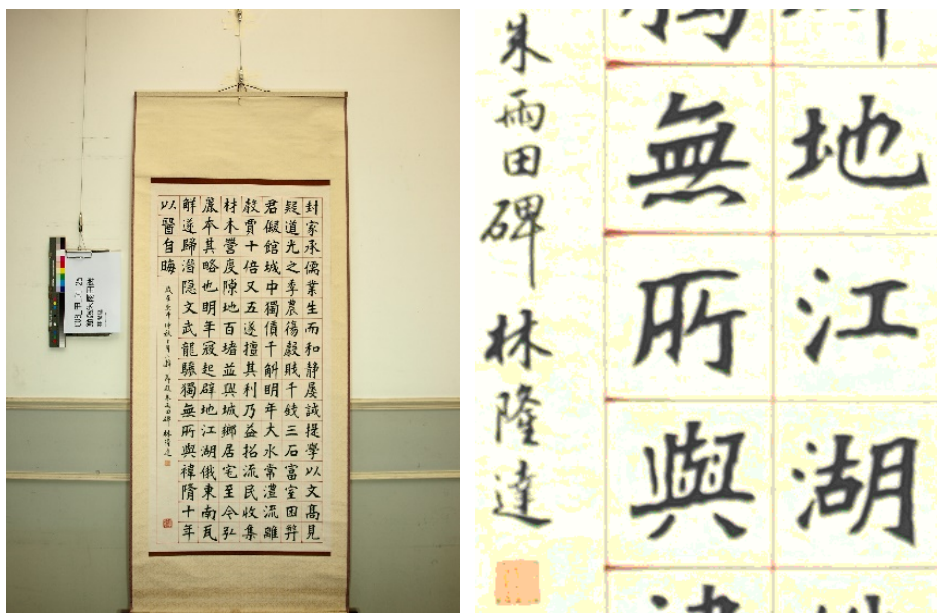 封家承儒業生而和靜屢誠提學以文髙見
疑道光之季農傷穀賤千錢三石富室囷
君僦館城中獨償千斛明年大水常澧流離
穀賈十倍又五遂擅其利乃益招流民收集
材木營度隙地百堵並興城鄉居宅至今弘
麗本其略也明年寇起辟地江湖俄東南瓦
鮮遂歸潛隱文武龍驤獨無所與十年
以醫自晦
朱雨田碑 林隆達
地江湖
無所與
朱雨田碑 林隆達